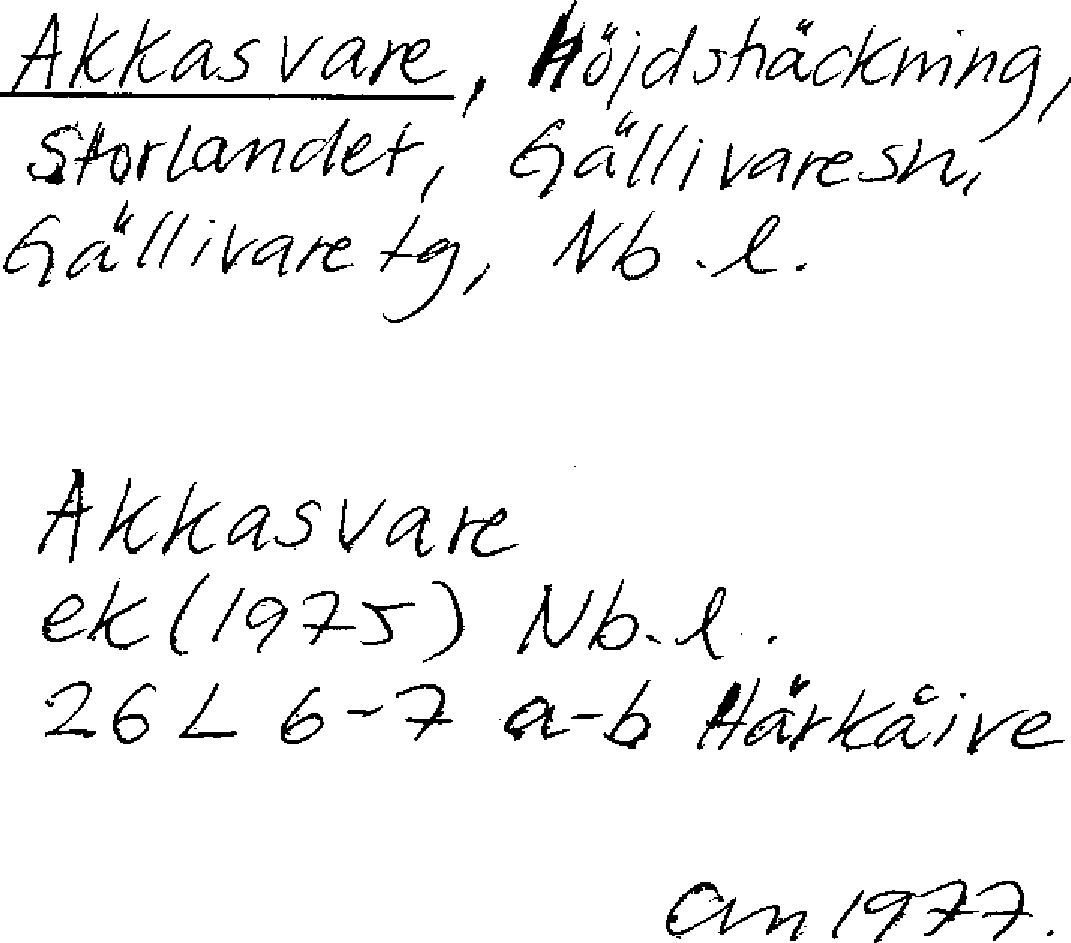 Akkasvare, Höjdsträckning,
Storlandet, Gällivare sn,
Gällivare tg, Nb.l.
Akkasvare
ek (1975) Nb.l.
26 L 6-7 a-b Härkåive
1977.